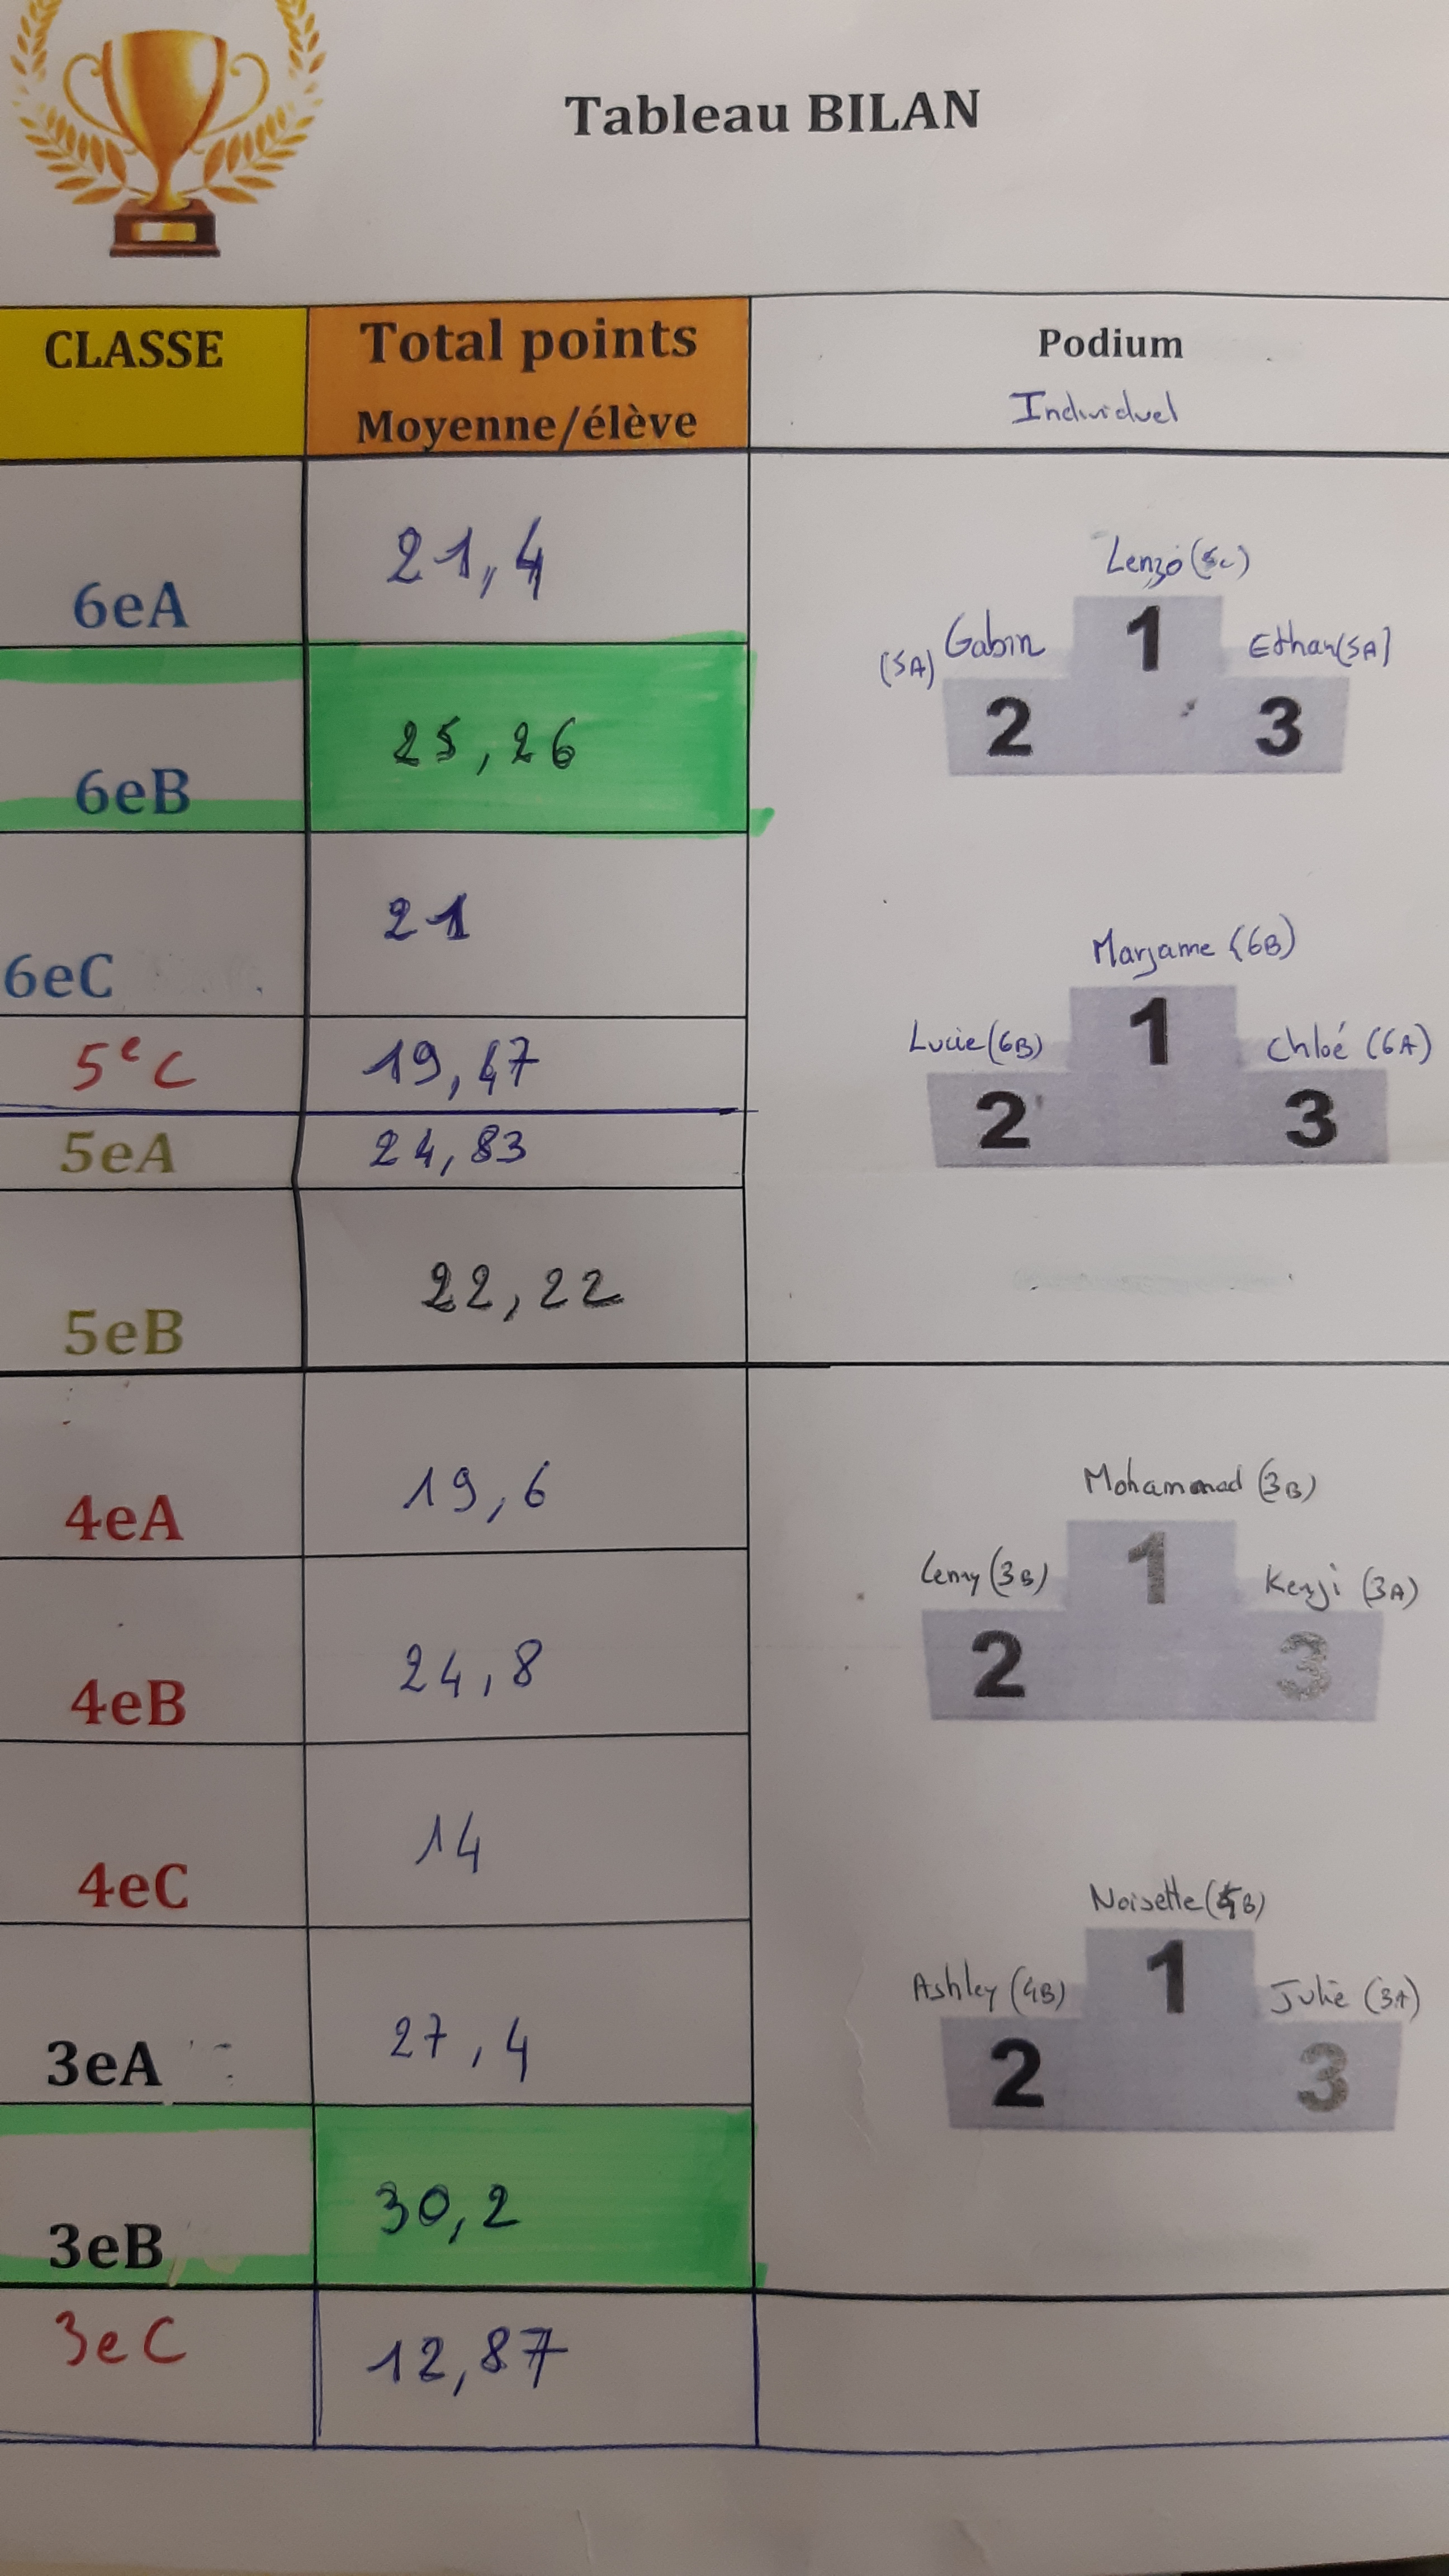 Tableau BILAN
CLASSE
Total points
Moyenne/élève
Podium
Individuel
6eA
21,4
6eB
25,26
6eC
21
5eC
19,47
5eA
24,83
5eB
22,22
4eA
19,6
4eB
24,8
4eC
14
3eA
27,4
3eB
30,2
3eC
12,87
Lenzo (5C)
(5A) Gabin
1
Ethan (5A)
2
3
Marjame (6B)
Lucie (6B)
1
Chloé (6A)
2
3
Mohammad (3B)
Lenny (3B)
1
Kenji (3A)
2
3
Noisette
Ashley (4B)
1
Julie (3A)
2
3